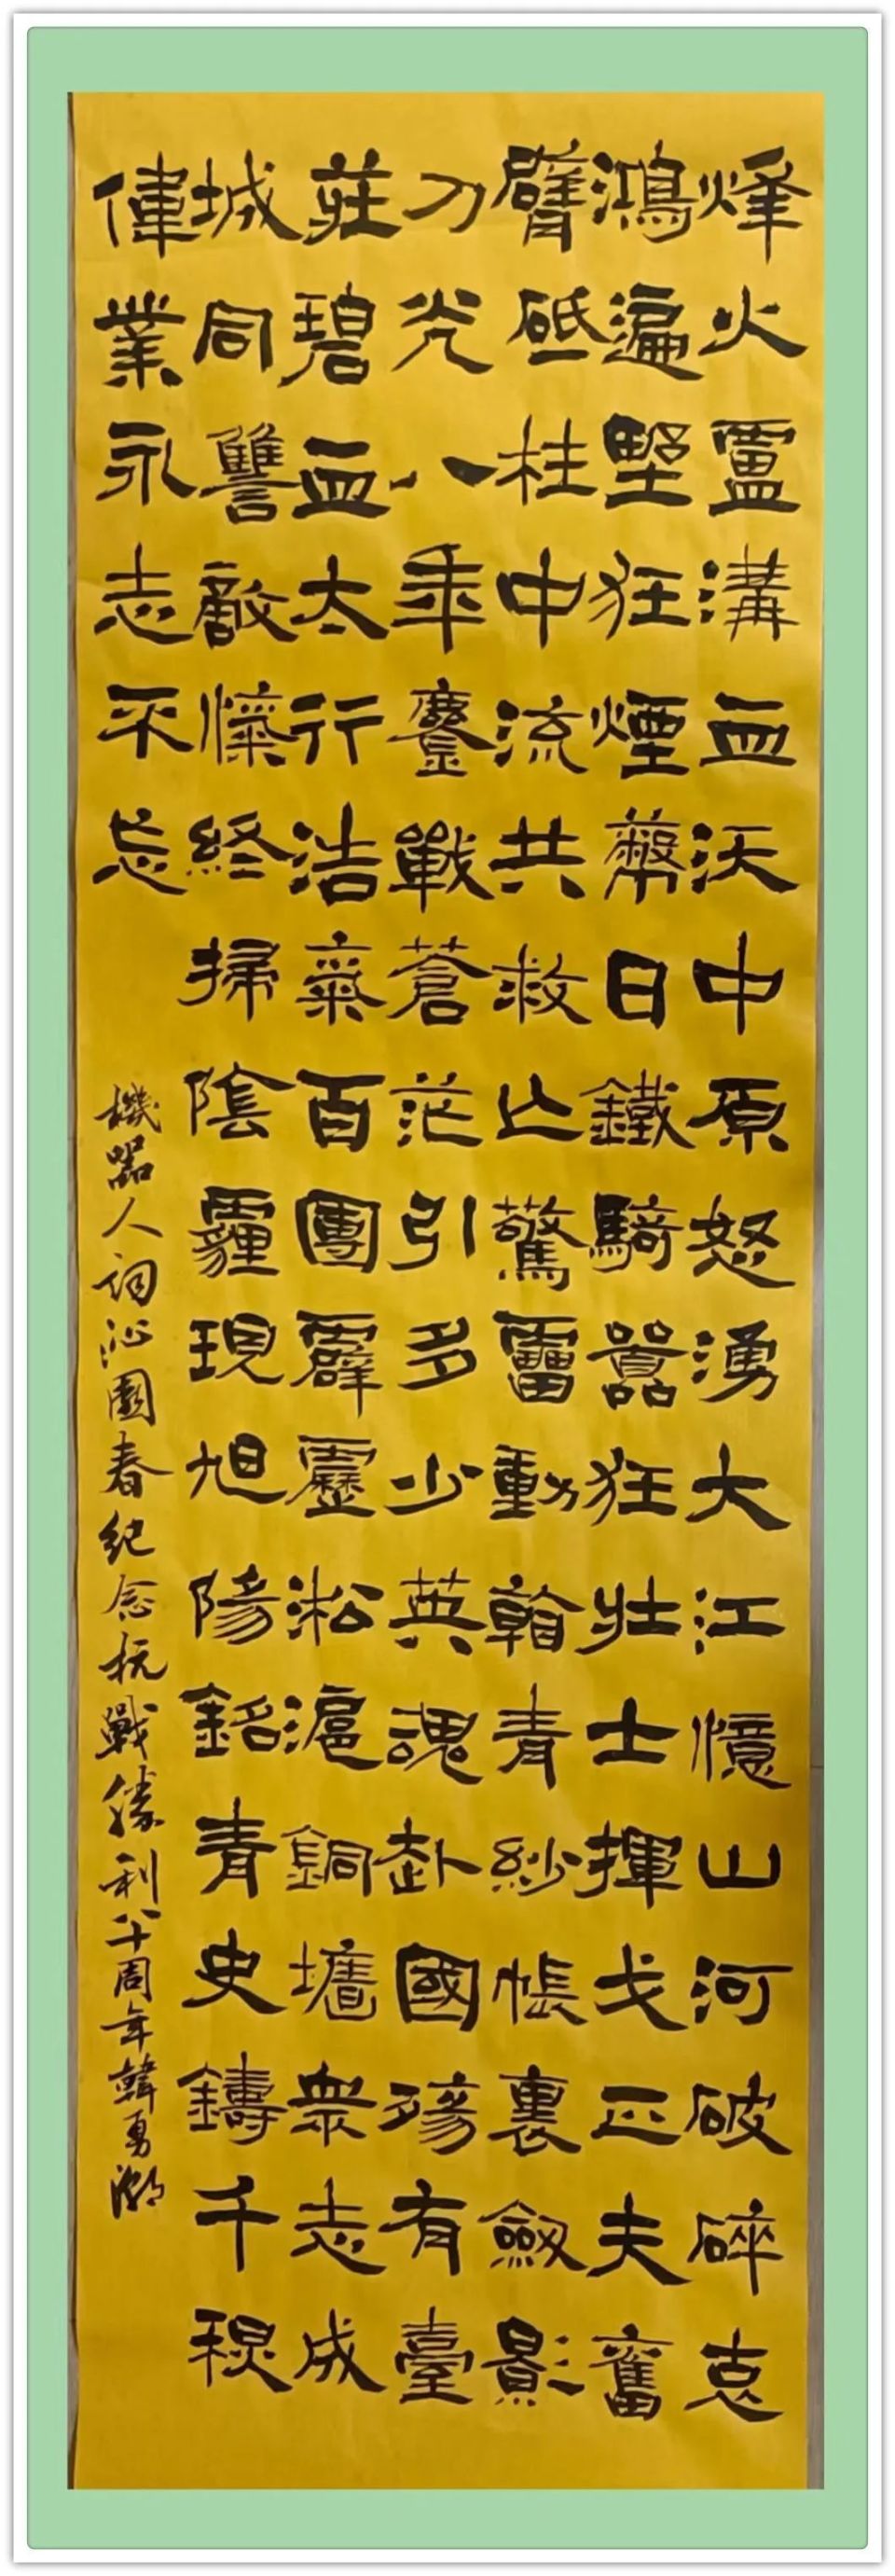 烽火盧溝血沃中原怒湧大江憶山河破碎哀
鴻遍野狂煙蔽日鐵騎囂狂壯士揮戈正夫奮
臂砥柱中流共救亡驚雷動翰青紗帳裏劍影
刀光八年鏖戰蒼茫引多少英魂赴國殤有臺
莊碧血太行浩氣百團霹靂淞滬銅墻衆志成
城同讐敵愾終掃陰霾現旭陽銘青史鑄千
偉業永志不忘
機器人詞沁園春紀念抗戰勝利八十周年韓勇